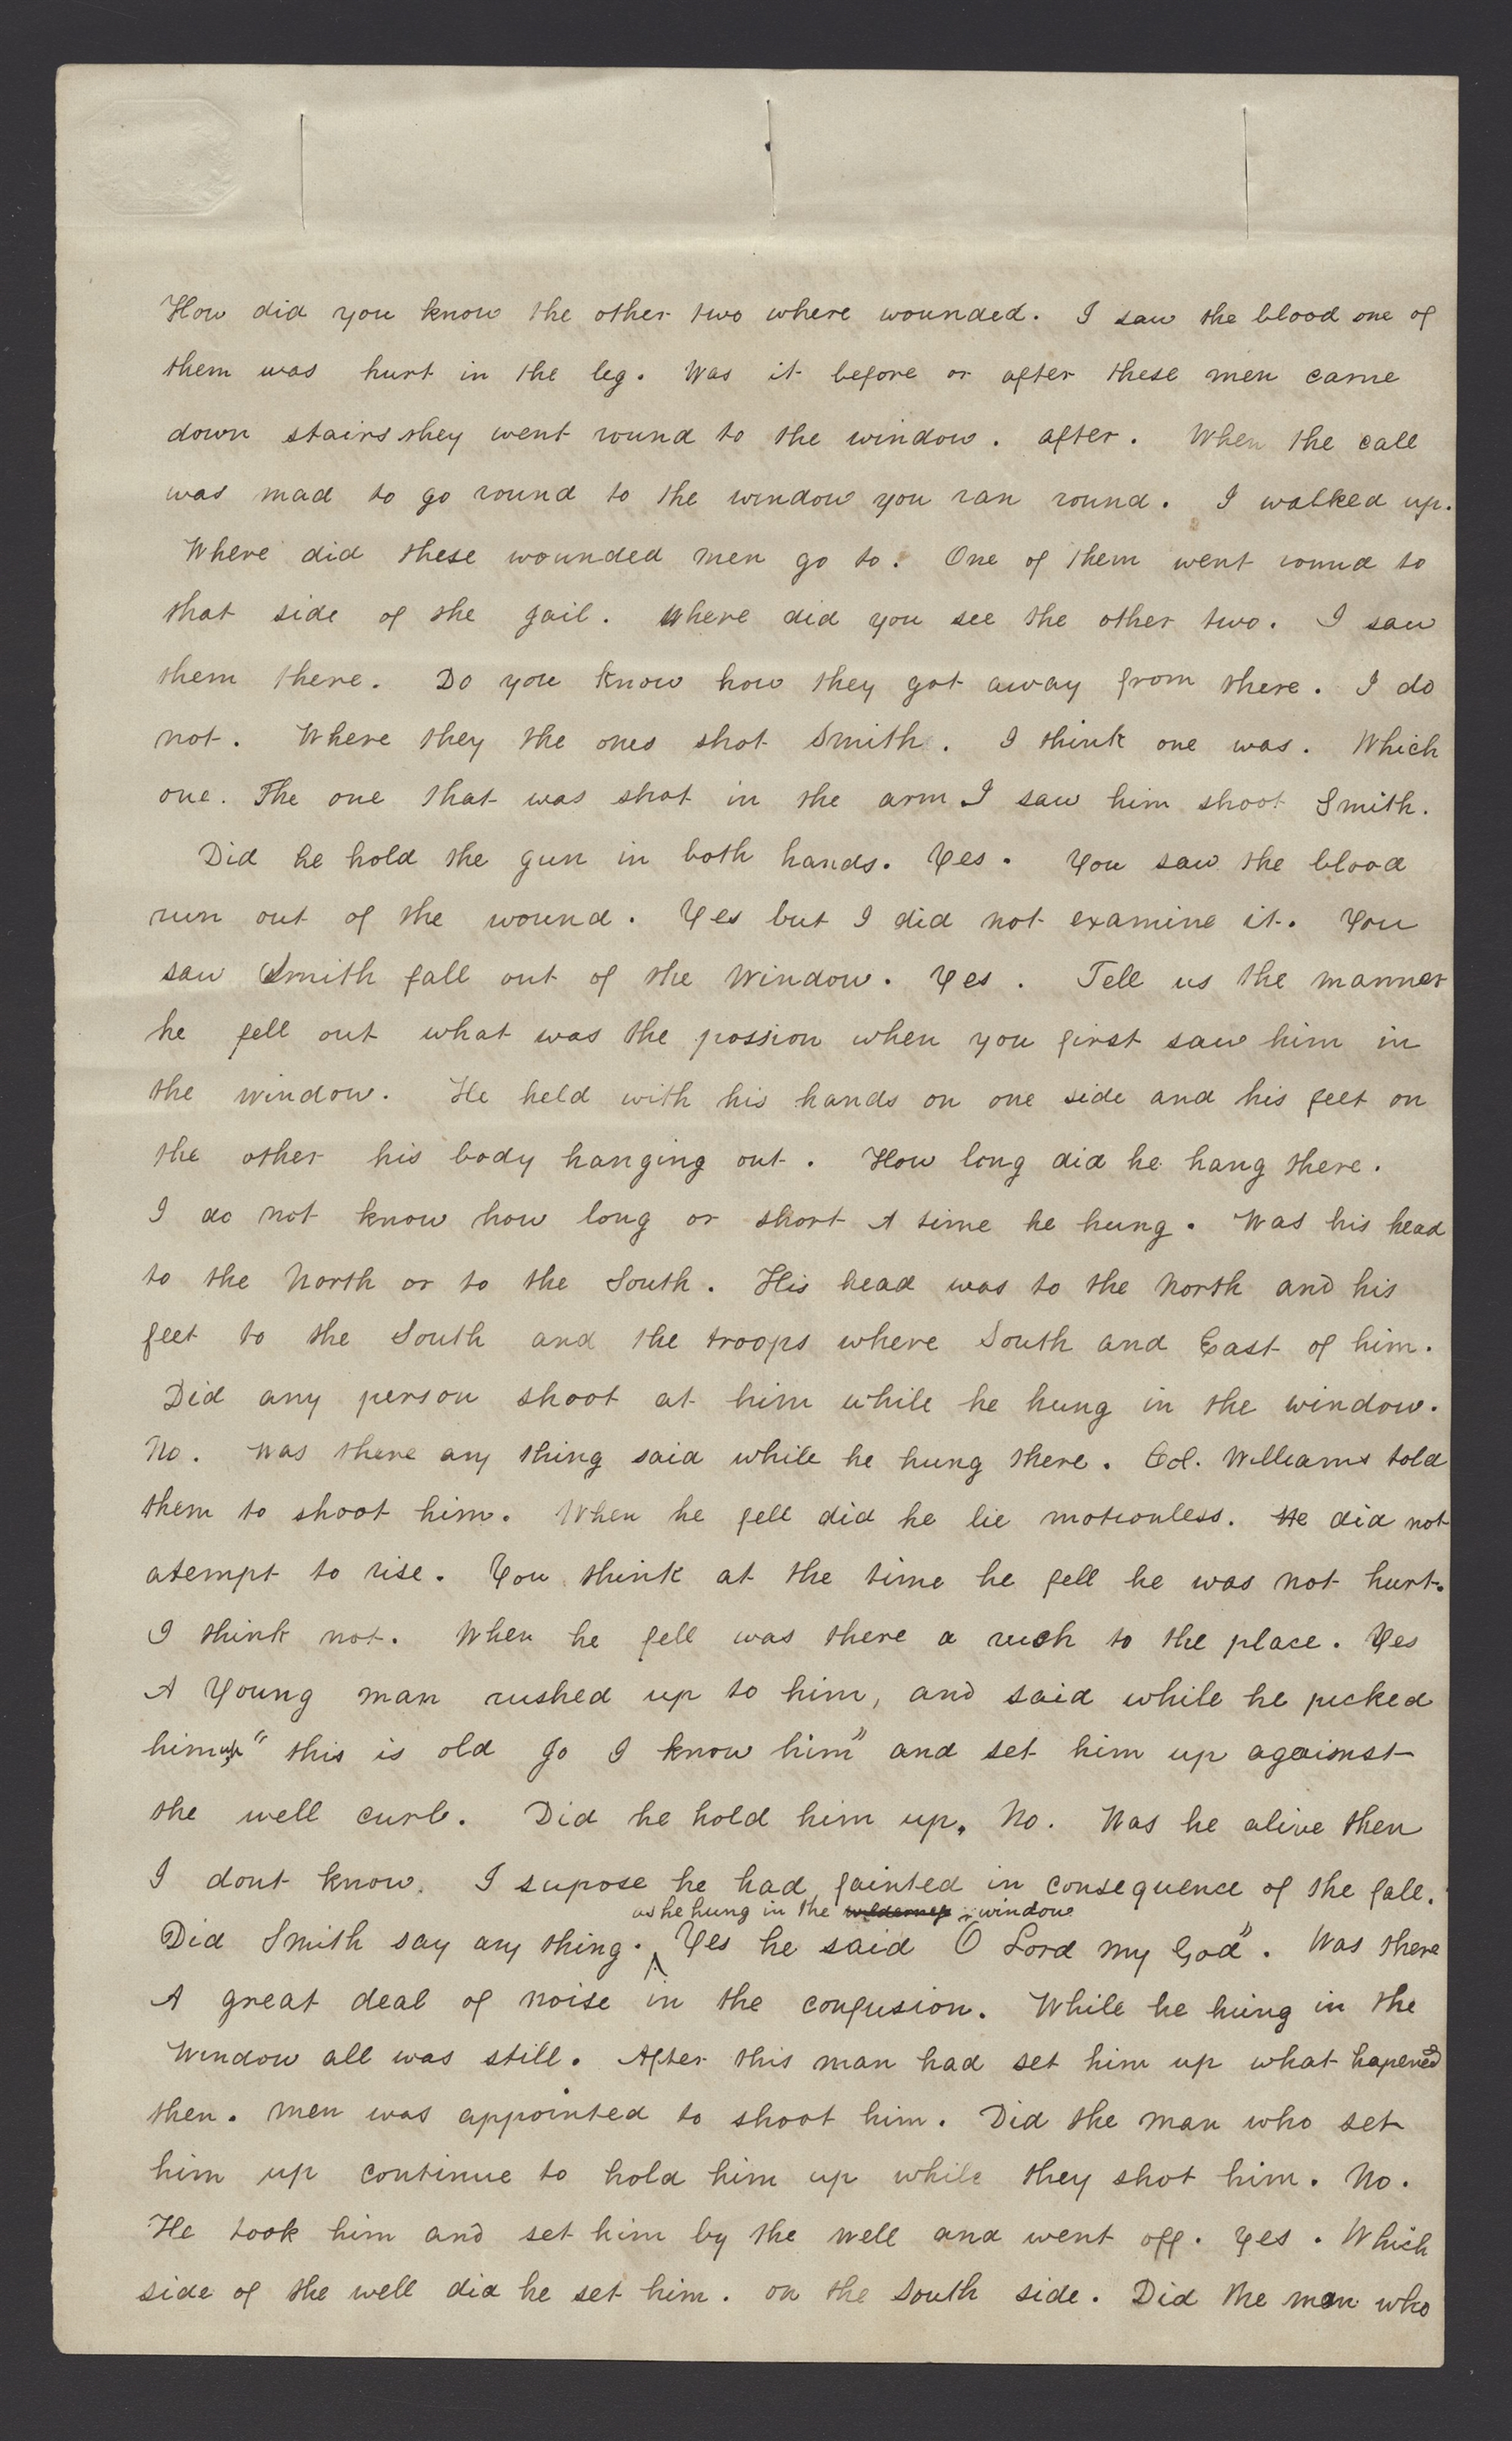 How did you know the other two where wounded. I saw the blood one of
them was hurt in the leg. Was it before or after these men came
down stairs they went round to the window. after. When the call
was mad to go round to the window you ran round. I walked up.
Where did these wounded men go to. One of them went round to
that side of the Jail. Where did you see the other two. I saw
them there. Do you know how they got away from there. I do
not. Where they the ones shot Smith. I think one was. Which
one. The one that was shot in the arm I saw him shoot Smith.
Did he hold the gun in both hands. Yes. You saw the blood
run out of the wound. Yes but I did not examine it. You
saw Smith fall out of the Window. Yes. Tell us the manner
he fell out what was the possion when you first saw him in
the window. He held with his hands on one side and his feet on
the other his body hanging out. How long did he hang there.
I do not know how long or short A time he hung. Was his head
to the North or to the South. His head was to the North and his
feet to the South and the troops where South and East of him.
Did any person shoot at him while he hung in the window.
No. Was there any thing said while he hung there. Col. Williams told
them to shoot him. When he fell did he lie motionless. He did not
atempt to rise. You think at the time he fell he was not hurt.
I think not. When he fell was there a rush to the place. Yes
A Young man rushed up to him, and said while he picked
him up "this is old Jo I know him" and set him up against
the well curb. Did he hold him up. No. Was he alive then
I dont know. I supose he had fainted in consequence of the fall.
as he hung in the wilderness window
Did Smith say any thing. Yes he said O Lord my God". Was there
A great deal of noise in the confusion. While he hung in the
Window all was still. After this man had set him up what hapened
then. men was appointed to shoot him. Did the man who set
him up continue to hold him up while they shot him. No.
He took him and set him by the well and went off. Yes. Which
side of the well did he set him. on the South side. Did the man who